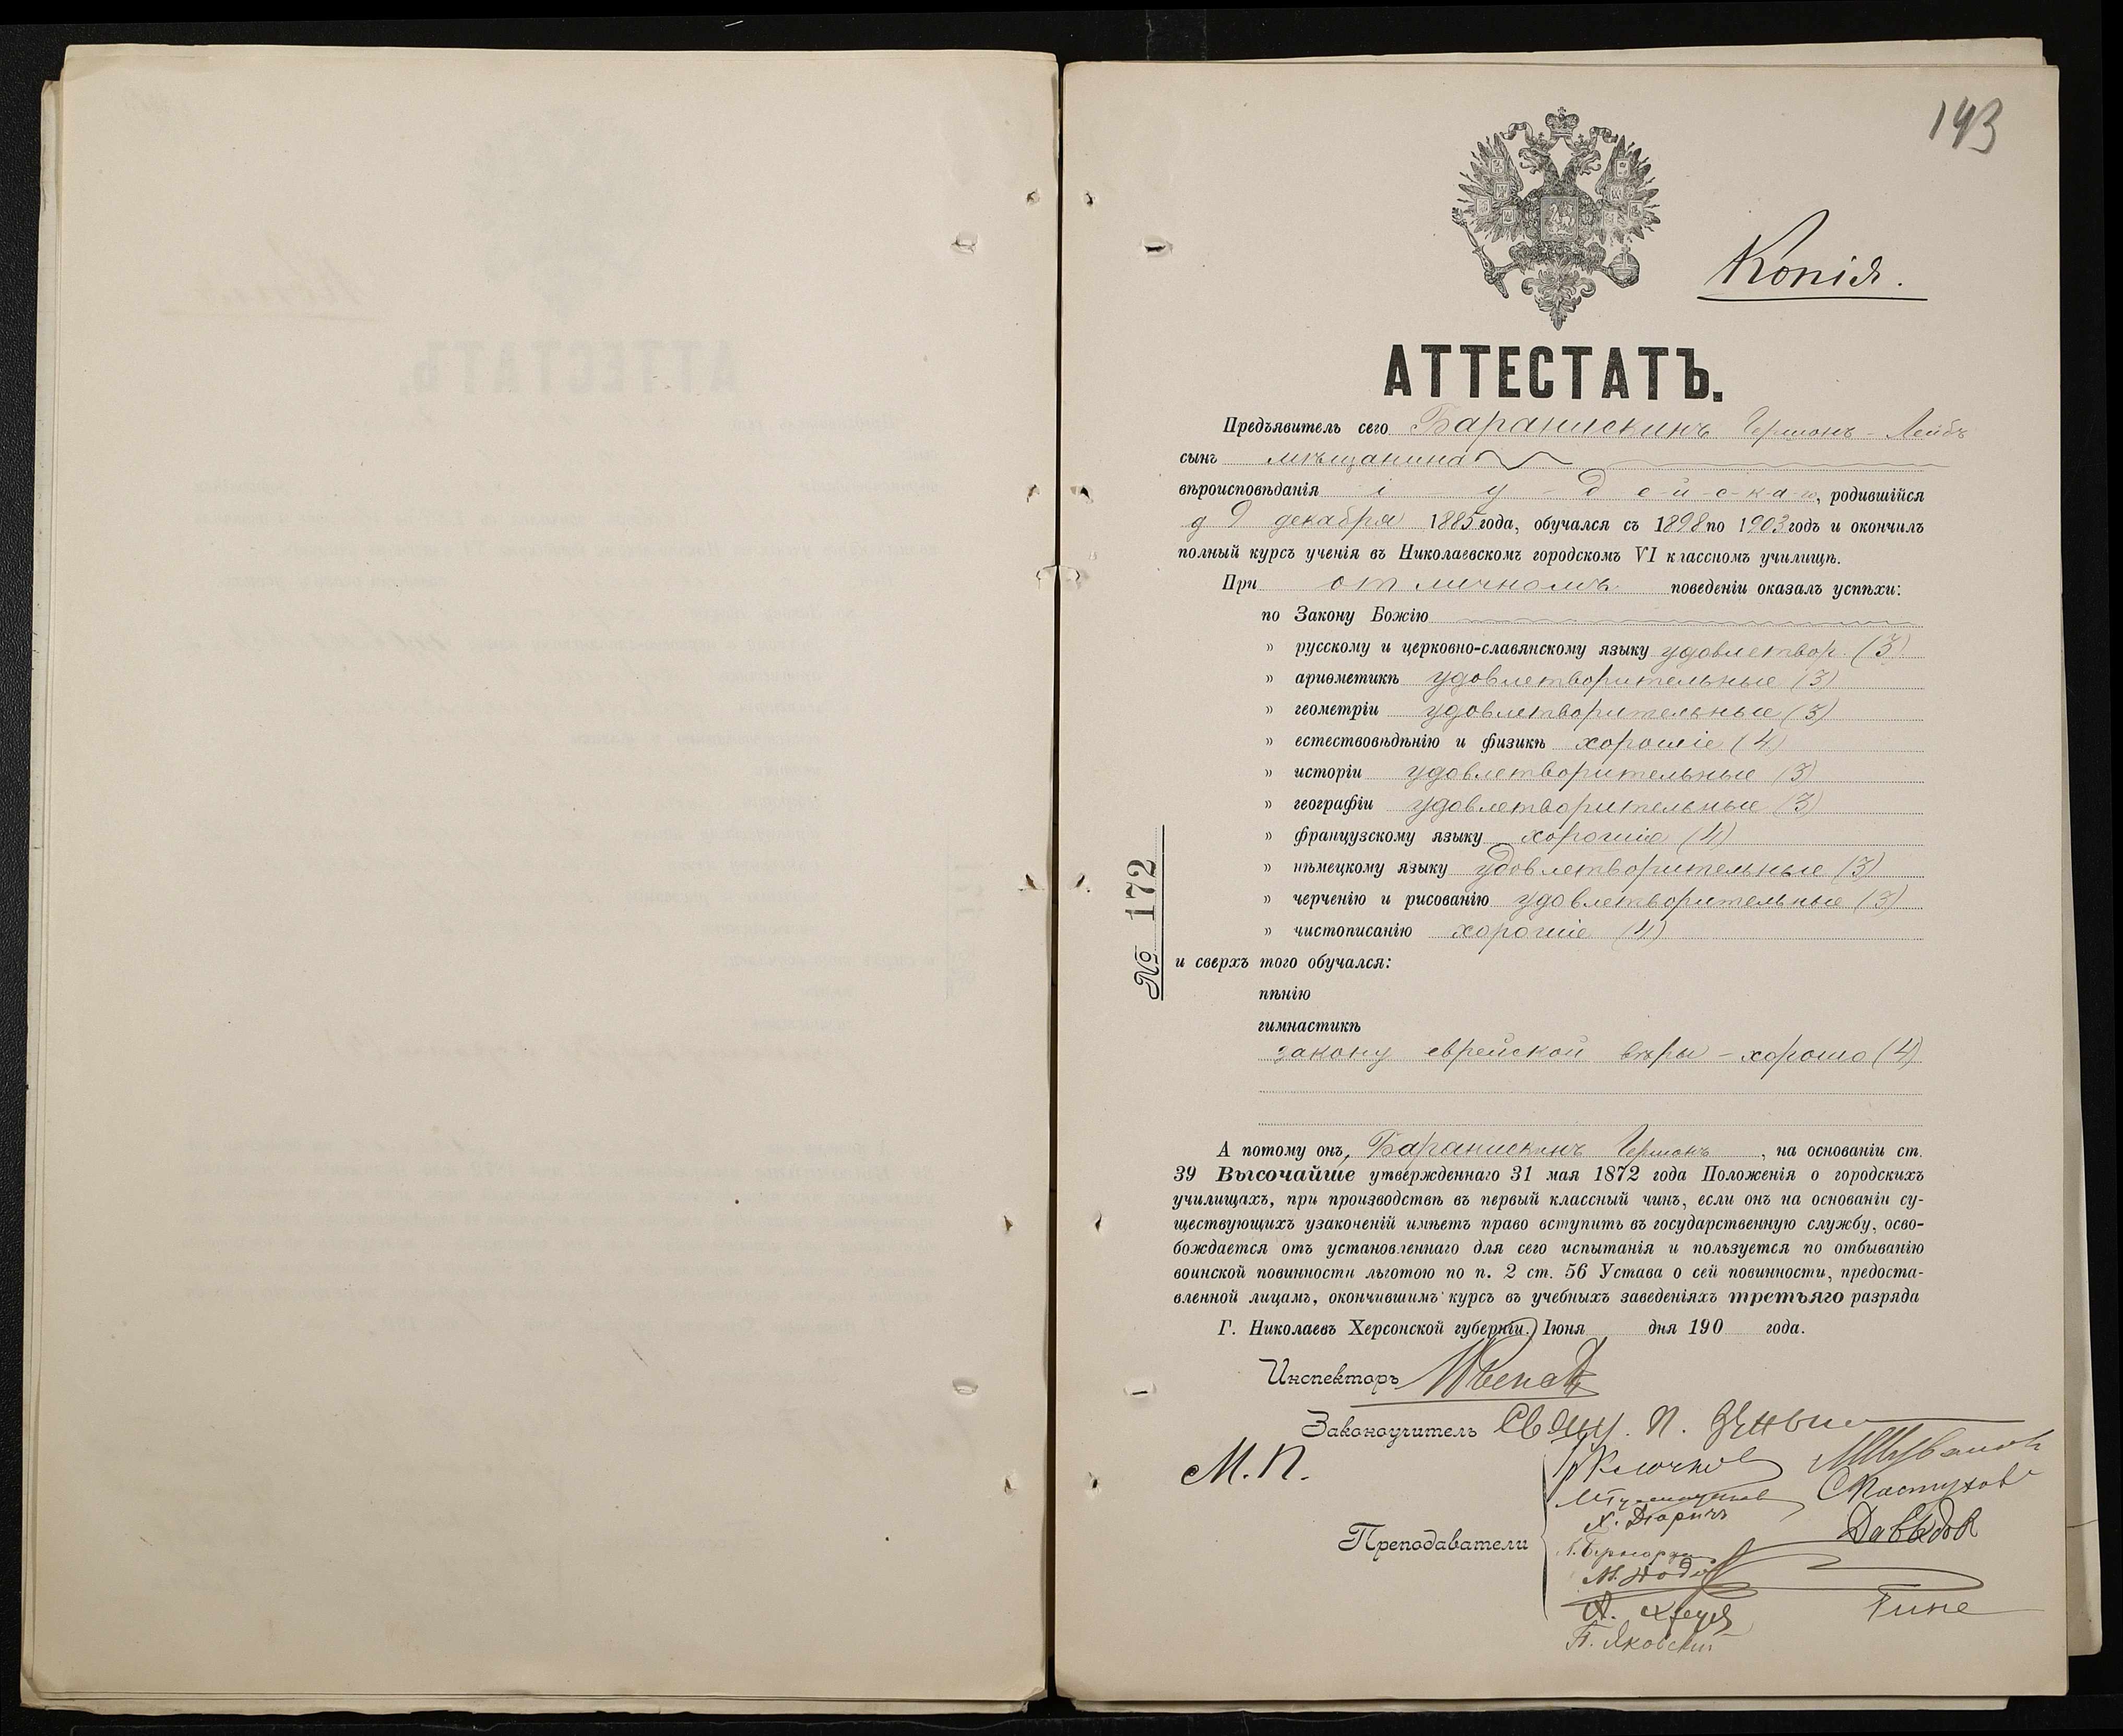 143
Копія.
АТТЕСТАТЪ.
Предъявитель сего Баранискинъ Гершонъ-Лейбъ
сынъ мѣщанина
вѣроисповѣданія і у д е-й-с-к-а-го, родившійся
9 декабря 1885 года, обучался съ 1898 по 1903 годъ и окончилъ
полный курсъ ученія въ Николаевскомъ городскомъ VI классномъ училищѣ.
При отличномъ поведеніи оказалъ успѣхи:
по Закону Божію
" русскому и церковно-славянскому языку удовлетвор. (3)
" ариѳметикѣ удовлетворительные (3)
" геометріи удовлетворительные (3)
" естествовѣдѣнію и физикѣ хорошіе (4)
" исторіи удовлетворительные (3)
" географіи удовлетворительные (3)
" французскому языку хорошіе (4)
" нѣмецкому языку удовлетворительные (3)
" черченію и рисованію удовлетворительные (3)
" чистописанію хорошіе (4)
№ 172
и сверхъ того обучался:
пѣнію
гимнастикѣ
закону еврейской вѣры - хорошо (4)
А потому онъ, Баранискинъ Гершонъ, на основаніи ст.
39 Высочайше утвержденнаго 31 мая 1872 года Положенія о городскихъ
училищахъ, при производствѣ въ первый классный чинъ, если онъ на основаніи су-
ществующихъ узаконеній имѣетъ право вступить въ государственную службу, осво-
бождается отъ установленнаго для сего испытанія и пользуется по отбыванію
воинской повинности льготою по п. 2 ст. 56 Устава о сей повинности, предоста-
вленной лицамъ, окончившимъ курсъ въ учебныхъ заведеніяхъ третьяго разряда
Г. Николаевъ Херсонской губерніи. Іюня дня 190 года.
Инспекторъ
Законоучитель Свящ. П.
М. П.
Преподаватели
Ключков
С Пастухов
Х. Дюричъ
Давыдов
Гине
П. Яковскій